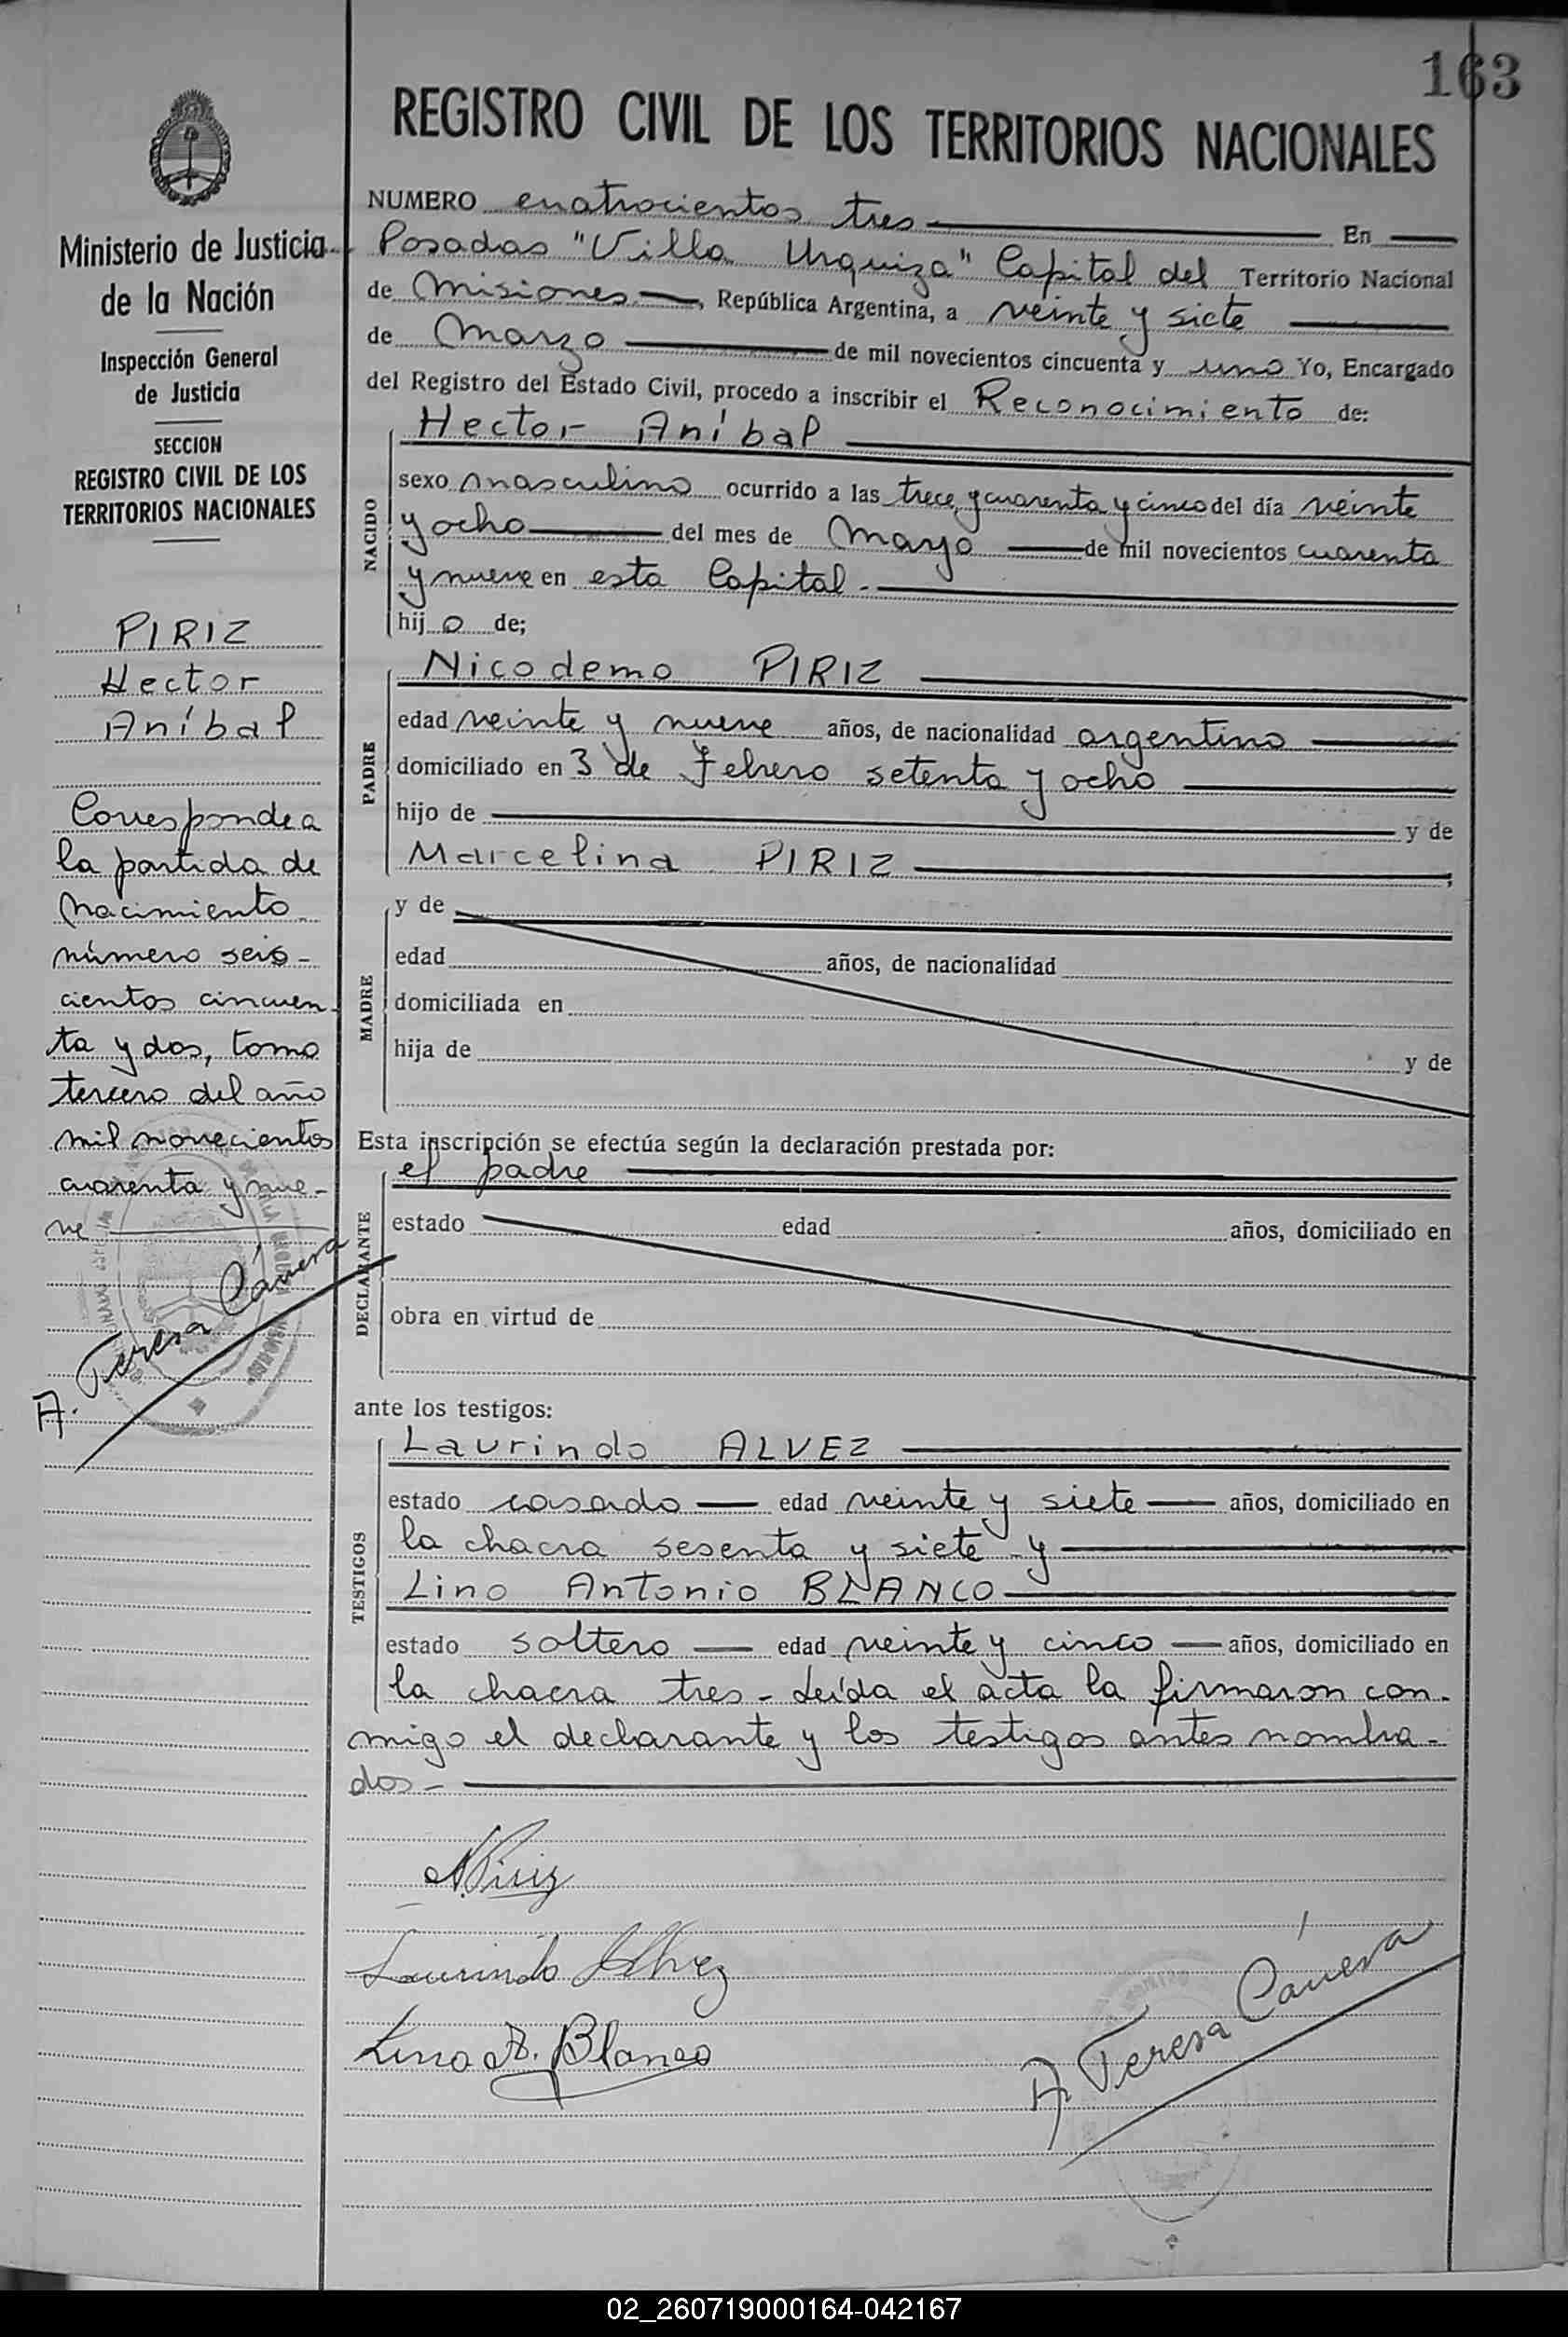 163
REGISTRO CIVIL DE LOS TERRITORIOS NACIONALES
Ministerio de Justicia
de la Nación
Inspección General
de Justicia
SECCION
REGISTRO CIVIL DE LOS
TERRITORIOS NACIONALES
PIRIZ
Hector
Aníbal
Corresponde a
la partida de
Nacimiento
número seis-
cientos cincuen-
ta y dos, tomo
tercero del año
mil novecientos
cuarenta y nue-
ve
A. Teresa Cávera
NUMERO cuatrocientos tres En
Posadas "Villa Urquiza" Capital del Territorio Nacional
de Misiones, República Argentina, a veinte y siete
de Marzo de mil novecientos cincuenta y uno Yo, Encargado
del Registro del Estado Civil, procedo a inscribir el Reconocimiento de:
NACIDO
Hector Aníbal
sexo masculino ocurrido a las trece y cuarenta y cinco del día veinte
y ocho del mes de Mayo de mil novecientos cuarenta
y nueve en esta Capital.-
hijo de;
PADRE
Nicodemo PIRIZ
edad veinte y nueve años, de nacionalidad argentino
domiciliado en 3 de Febrero setenta y ocho
hijo de y de
Marcelina PIRIZ ;
MADRE
y de
edad años, de nacionalidad
domiciliada en
hija de y de
Esta inscripción se efectúa según la declaración prestada por:
DECLARANTE
el padre
estado edad años, domiciliado en
obra en virtud de
ante los testigos:
TESTIGOS
Laurindo ALVEZ
estado casado edad veinte y siete años, domiciliado en
la chacra sesenta y siete y
Lino Antonio BLANCO
estado soltero edad veinte y cinco años, domiciliado en
la chacra tres - Leída el acta la firmaron con-
migo el declarante y los testigos antes nombra-
dos.-
N. Piriz
Laurindo Alvez
Lino A. Blanco
A. Teresa Cávera
02_260719000164-042167